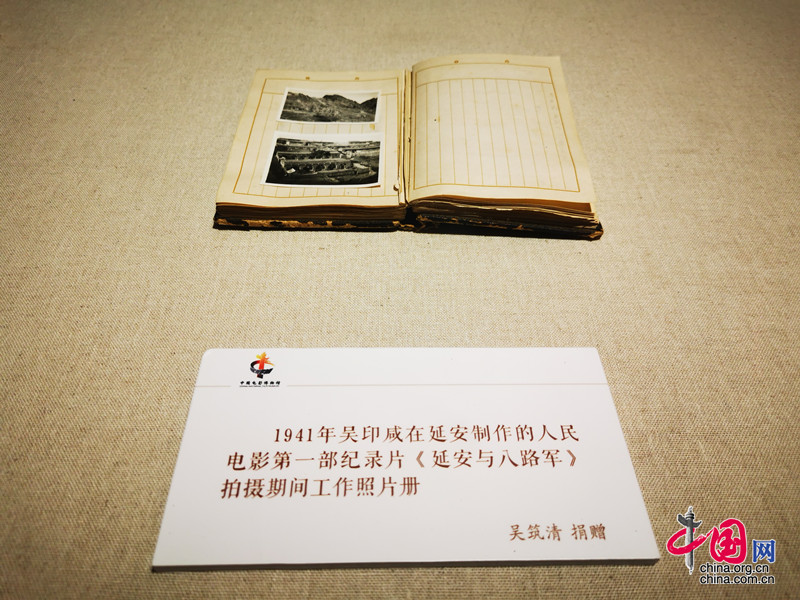 中国电影博物馆
1941年吴印咸在延安制作的人民
电影第一部纪录片《延安与八路军》
拍摄期间工作照片册
吴筑清 捐赠
中国网
china.org.cn
china.com.cn